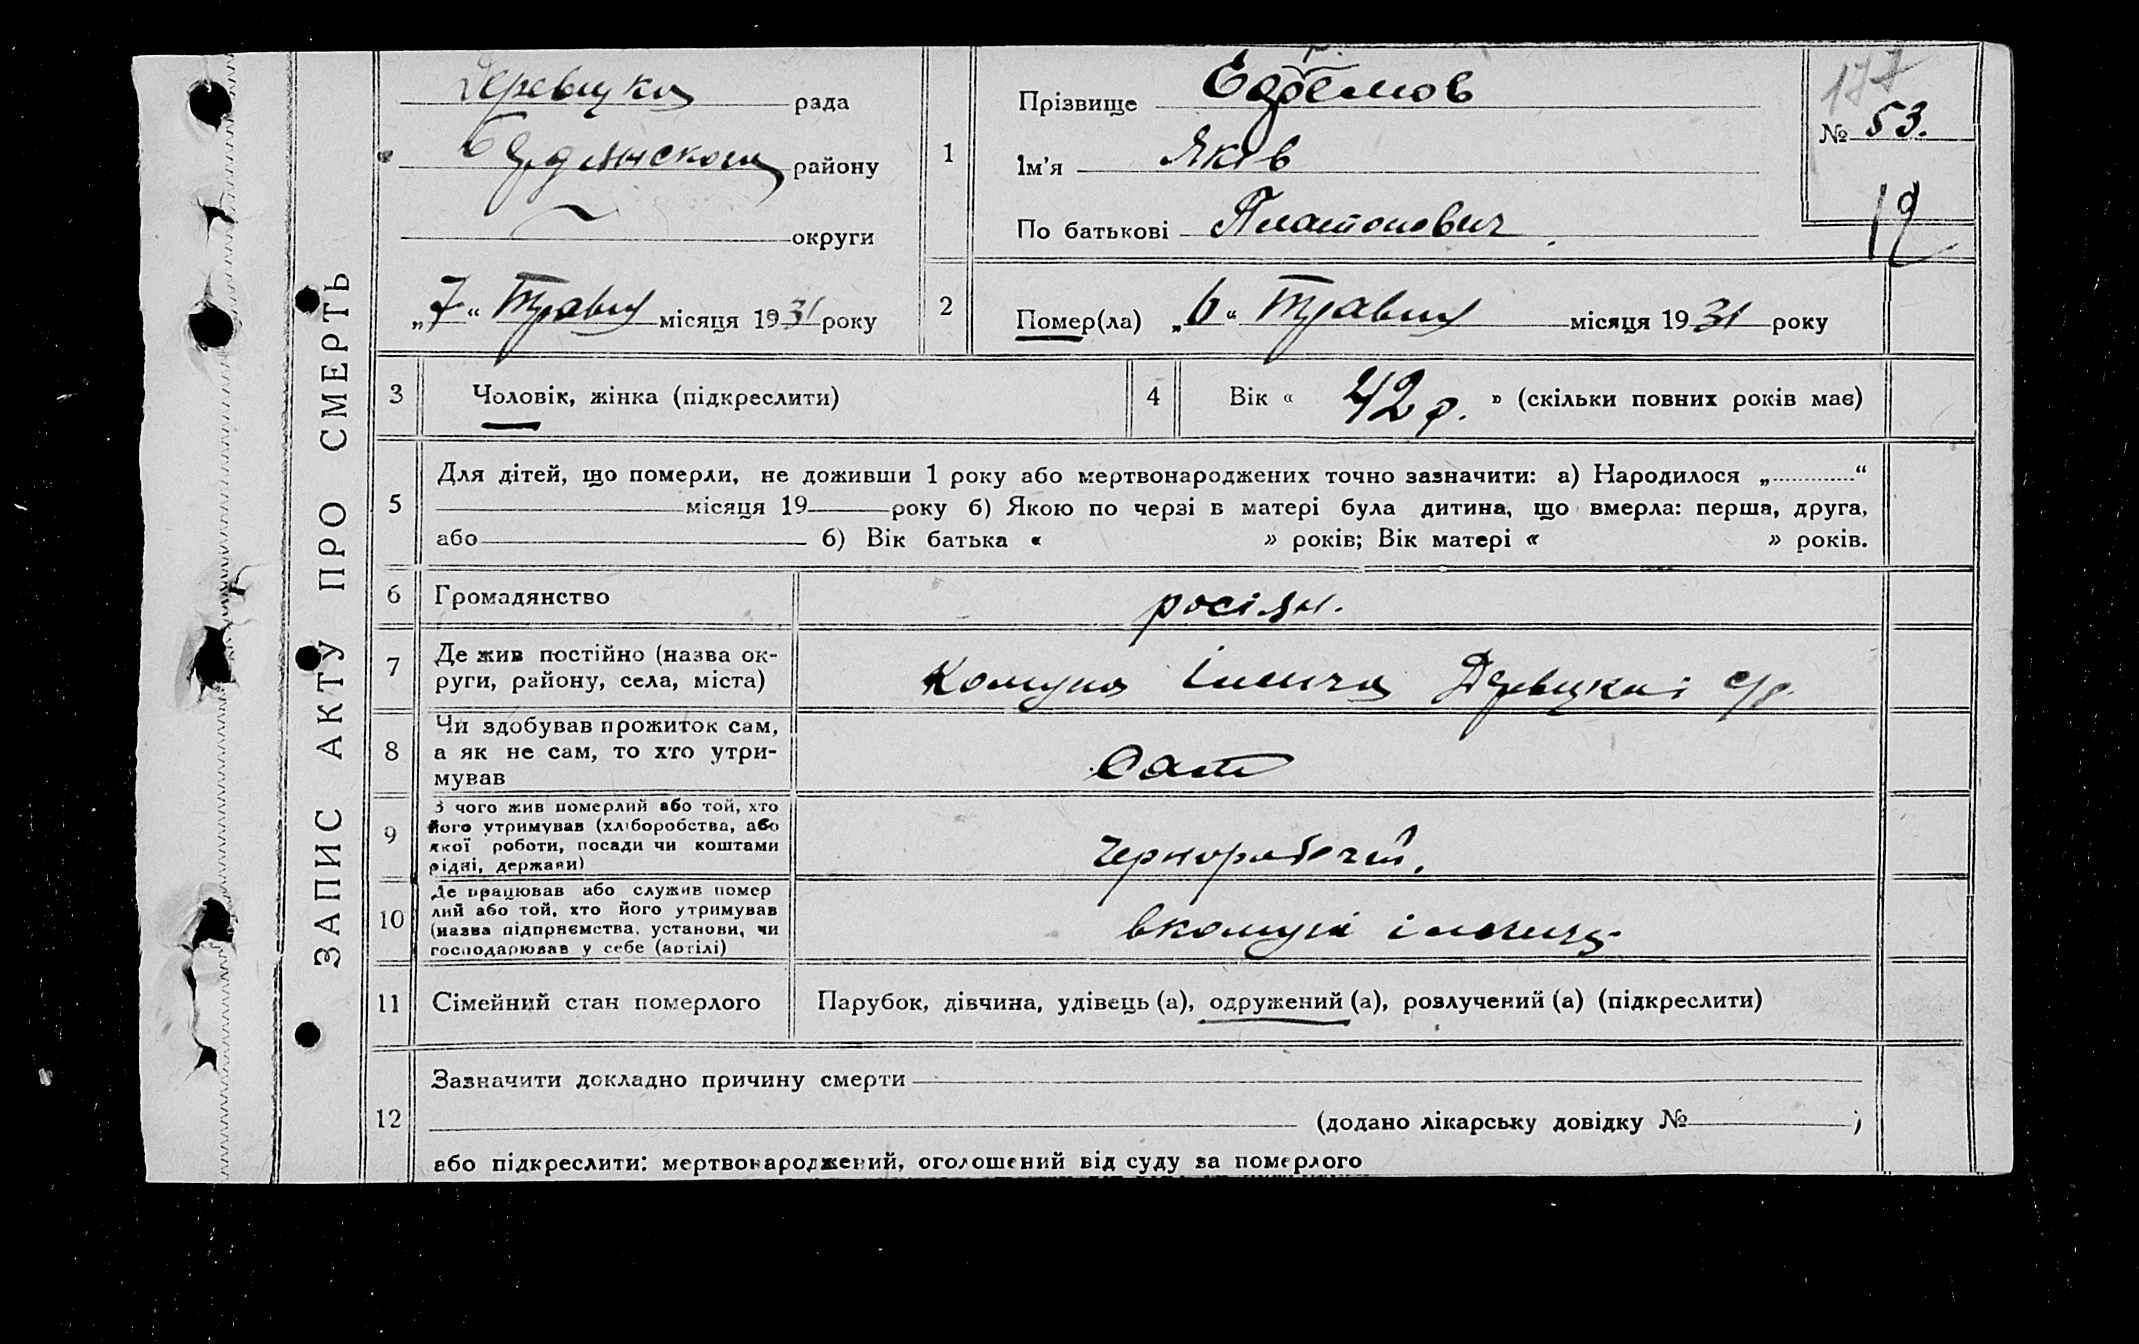 ЗАПИС АКТУ ПРО СМЕРТЬ
Деревицка рада
району
округи
„7“ Травня місяця 1931 року
1
Прізвище Ефремов
Ім'я Яків
По батькові Платонович
177
№ 53.
19
2
Помер(ла) „6“ Травня місяця 1931 року
3 Чоловік, жінка (підкреслити)
4 Вік « 42 р. » (скільки повних років має)
5
Для дітей, що померли, не доживши 1 року або мертвонароджених точно зазначити: а) Народилося „ “
місяця 19 року б) Якою по черзі в матері була дитина, що вмерла: перша, друга,
або б) Вік батька « » років; Вік матері « » років.
6 Громадянство росіян.
7 Де жив постійно (назва ок-
руги, району, села, міста)
Комуна Ілліча Деревицкиі с/р.
8 Чи здобував прожиток сам,
а як не сам, то хто утри-
мував
Сам
9 З чого жив померлий або той, хто
його утримував (хліборобства, або
якої роботи, посади чи коштами
рідні, держави)
Чернорабочий.
10 Де працював або служив помер
лий або той, хто його утримував
(назва підприємства, установи, чи
господарював у себе (артілі)
в комуні Ілліча
11 Сімейний стан померлого Парубок, дівчина, удівець (а), одружений (а), розлучений (а) (підкреслити)
12
Зазначити докладно причину смерти
(додано лікарську довідку № )
або підкреслити: мертвонароджений, оголошений від суду за померлого